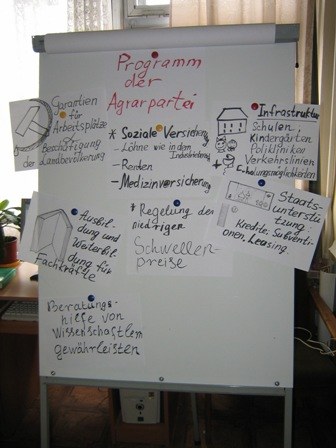 Programm
der
Agrarpartei
Garantien
für
Arbeitsplätze
Beschäftigung
der Landbevölkerung
* Soziale Versicherung
- Löhne wie in dem
Industriebetrieb
- Renten
- Medizinversicherung
* Infrastruktur
Schulen,
Kindergärten
Polikliniken
Verkehrslinien
Erholungsmöglichkeiten
Ausbil-
dung und
Weiterbil-
dung für
Fachkräfte
* Regelung der
niedrigen
Schwellen-
preise
Staats-
unterstü-
tzung:
Kredite, Subventi-
onen, Leasing
Beratungs-
hilfe von
Wissenschaftlern
gewährleisten